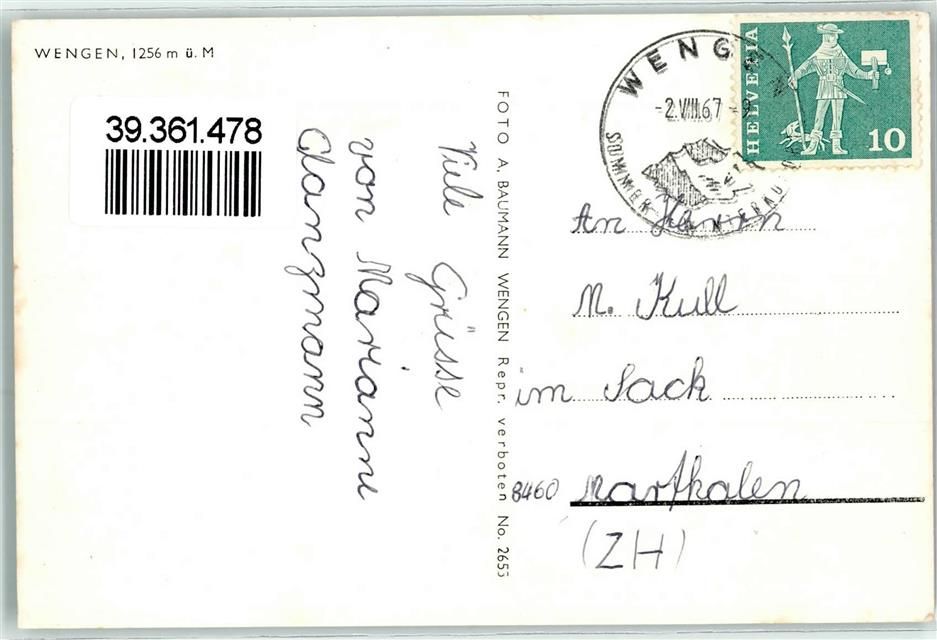 WENGEN, 1256 m ü. M
39.361.478
Viele Grüsse
von Marianne
Glanzmann
FOTO A. BAUMANN WENGEN Repr. verboten No. 2655
WENGEN
-2.VIII.67 -9
SOMMER
HELVETIA
10
An Herrn
M. Kull
im Sack
8460 Marthalen
(ZH)